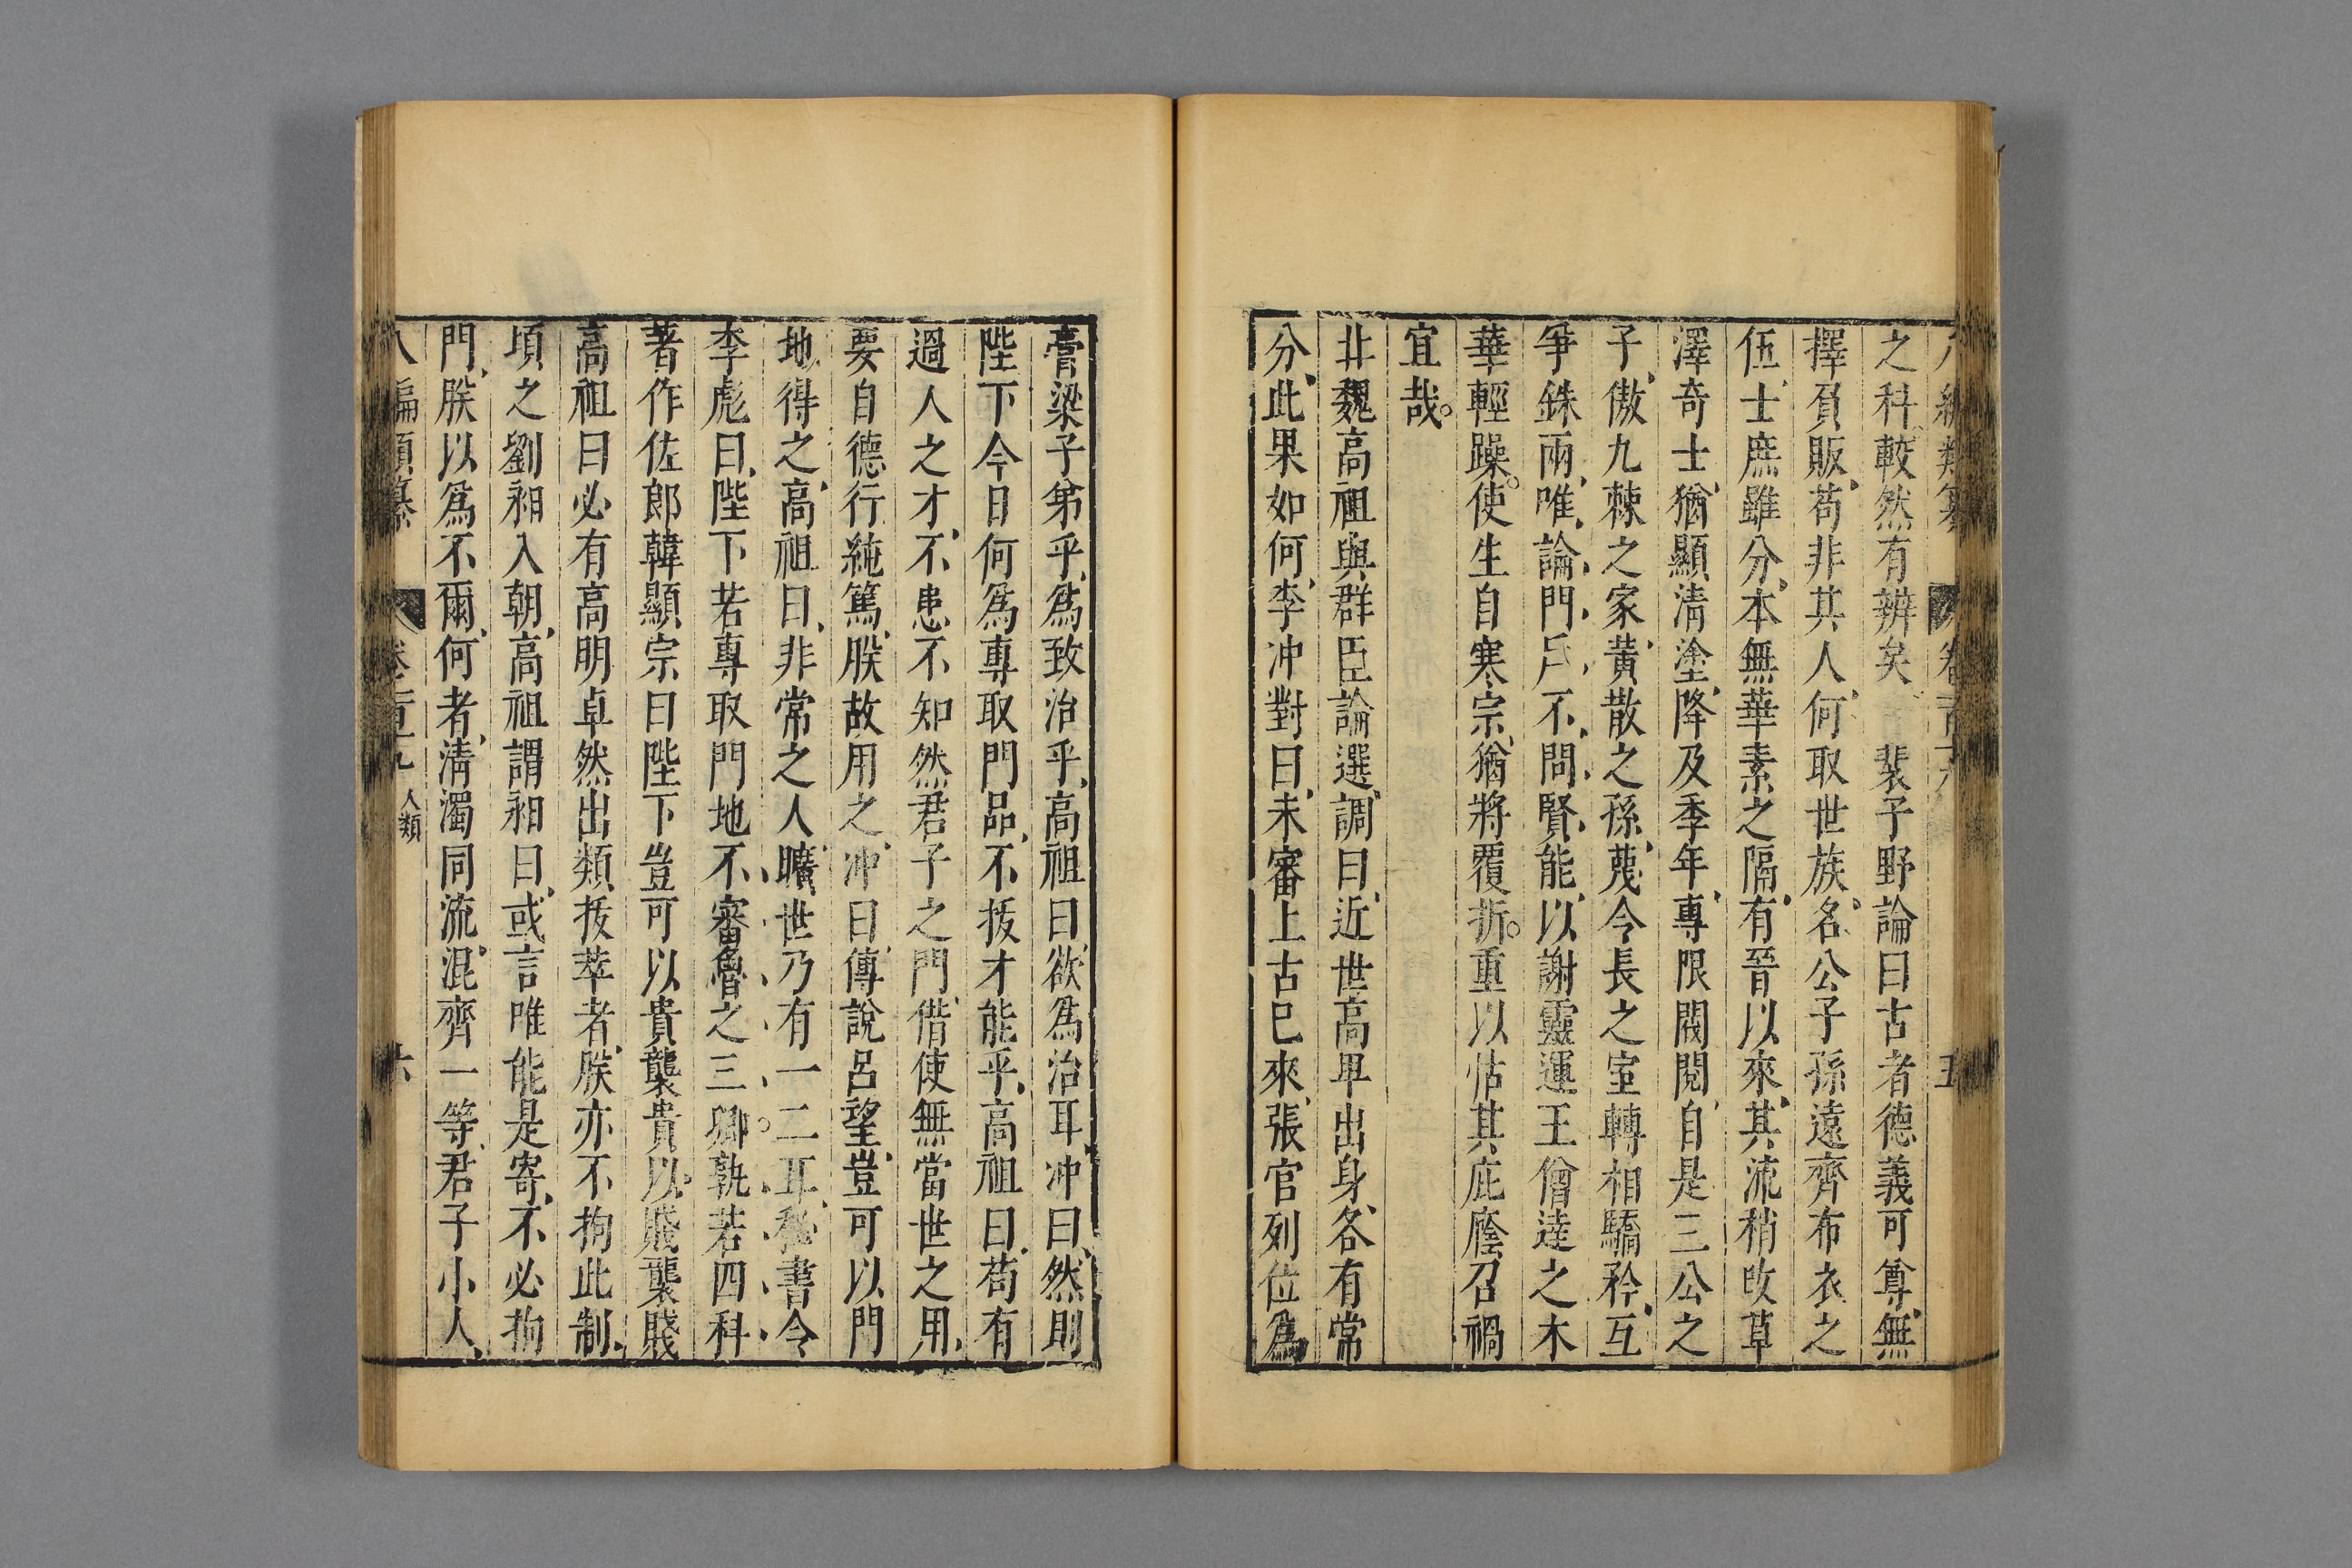 之科較然有辨矣　裴子野論曰古者德義可尊無
擇負販苟非其人何取世族名公子孫遠齊布衣之
伍士庶雖分本無華素之隔有晉以來其流稍改草
澤奇士猶顯清塗降及季年專限閥閱自是三公之
子傲九棘之家黃散之孫蔑令長之室轉相驕矜互
爭銖兩唯論門戶不問賢能以謝靈運王僧達之木
華輕躁使生自寒宗猶將覆折重以怙其庇廕召禍
宜哉
非魏高祖與群臣論選調曰近世高卑出身各有常
分此果如何李冲對曰未審上古巳來張官列位為
膏梁子弟乎為致治乎高祖曰欲為治耳冲曰然則
陛下今日何為專取門品不拔才能乎高祖曰苟有
過人之才不患不知然君子之門借使無當世之用
要自德行純篤朕故用之冲曰傳說呂望豈可以門
地得之高祖曰非常之人曠世乃有一二耳秘書令
李彪曰陛下若專取門地不審魯之三卿孰若四科
著作佐郎韓顯宗曰陛下豈可以貴襲貴以賤襲賤
高祖曰必有高明卓然出類拔萃者朕亦不拘此制
頃之劉昶入朝高祖謂昶曰或言唯能是寄不必拘
門朕以為不爾何者清濁同流混齊一等君子小人
八編類纂　人類　六